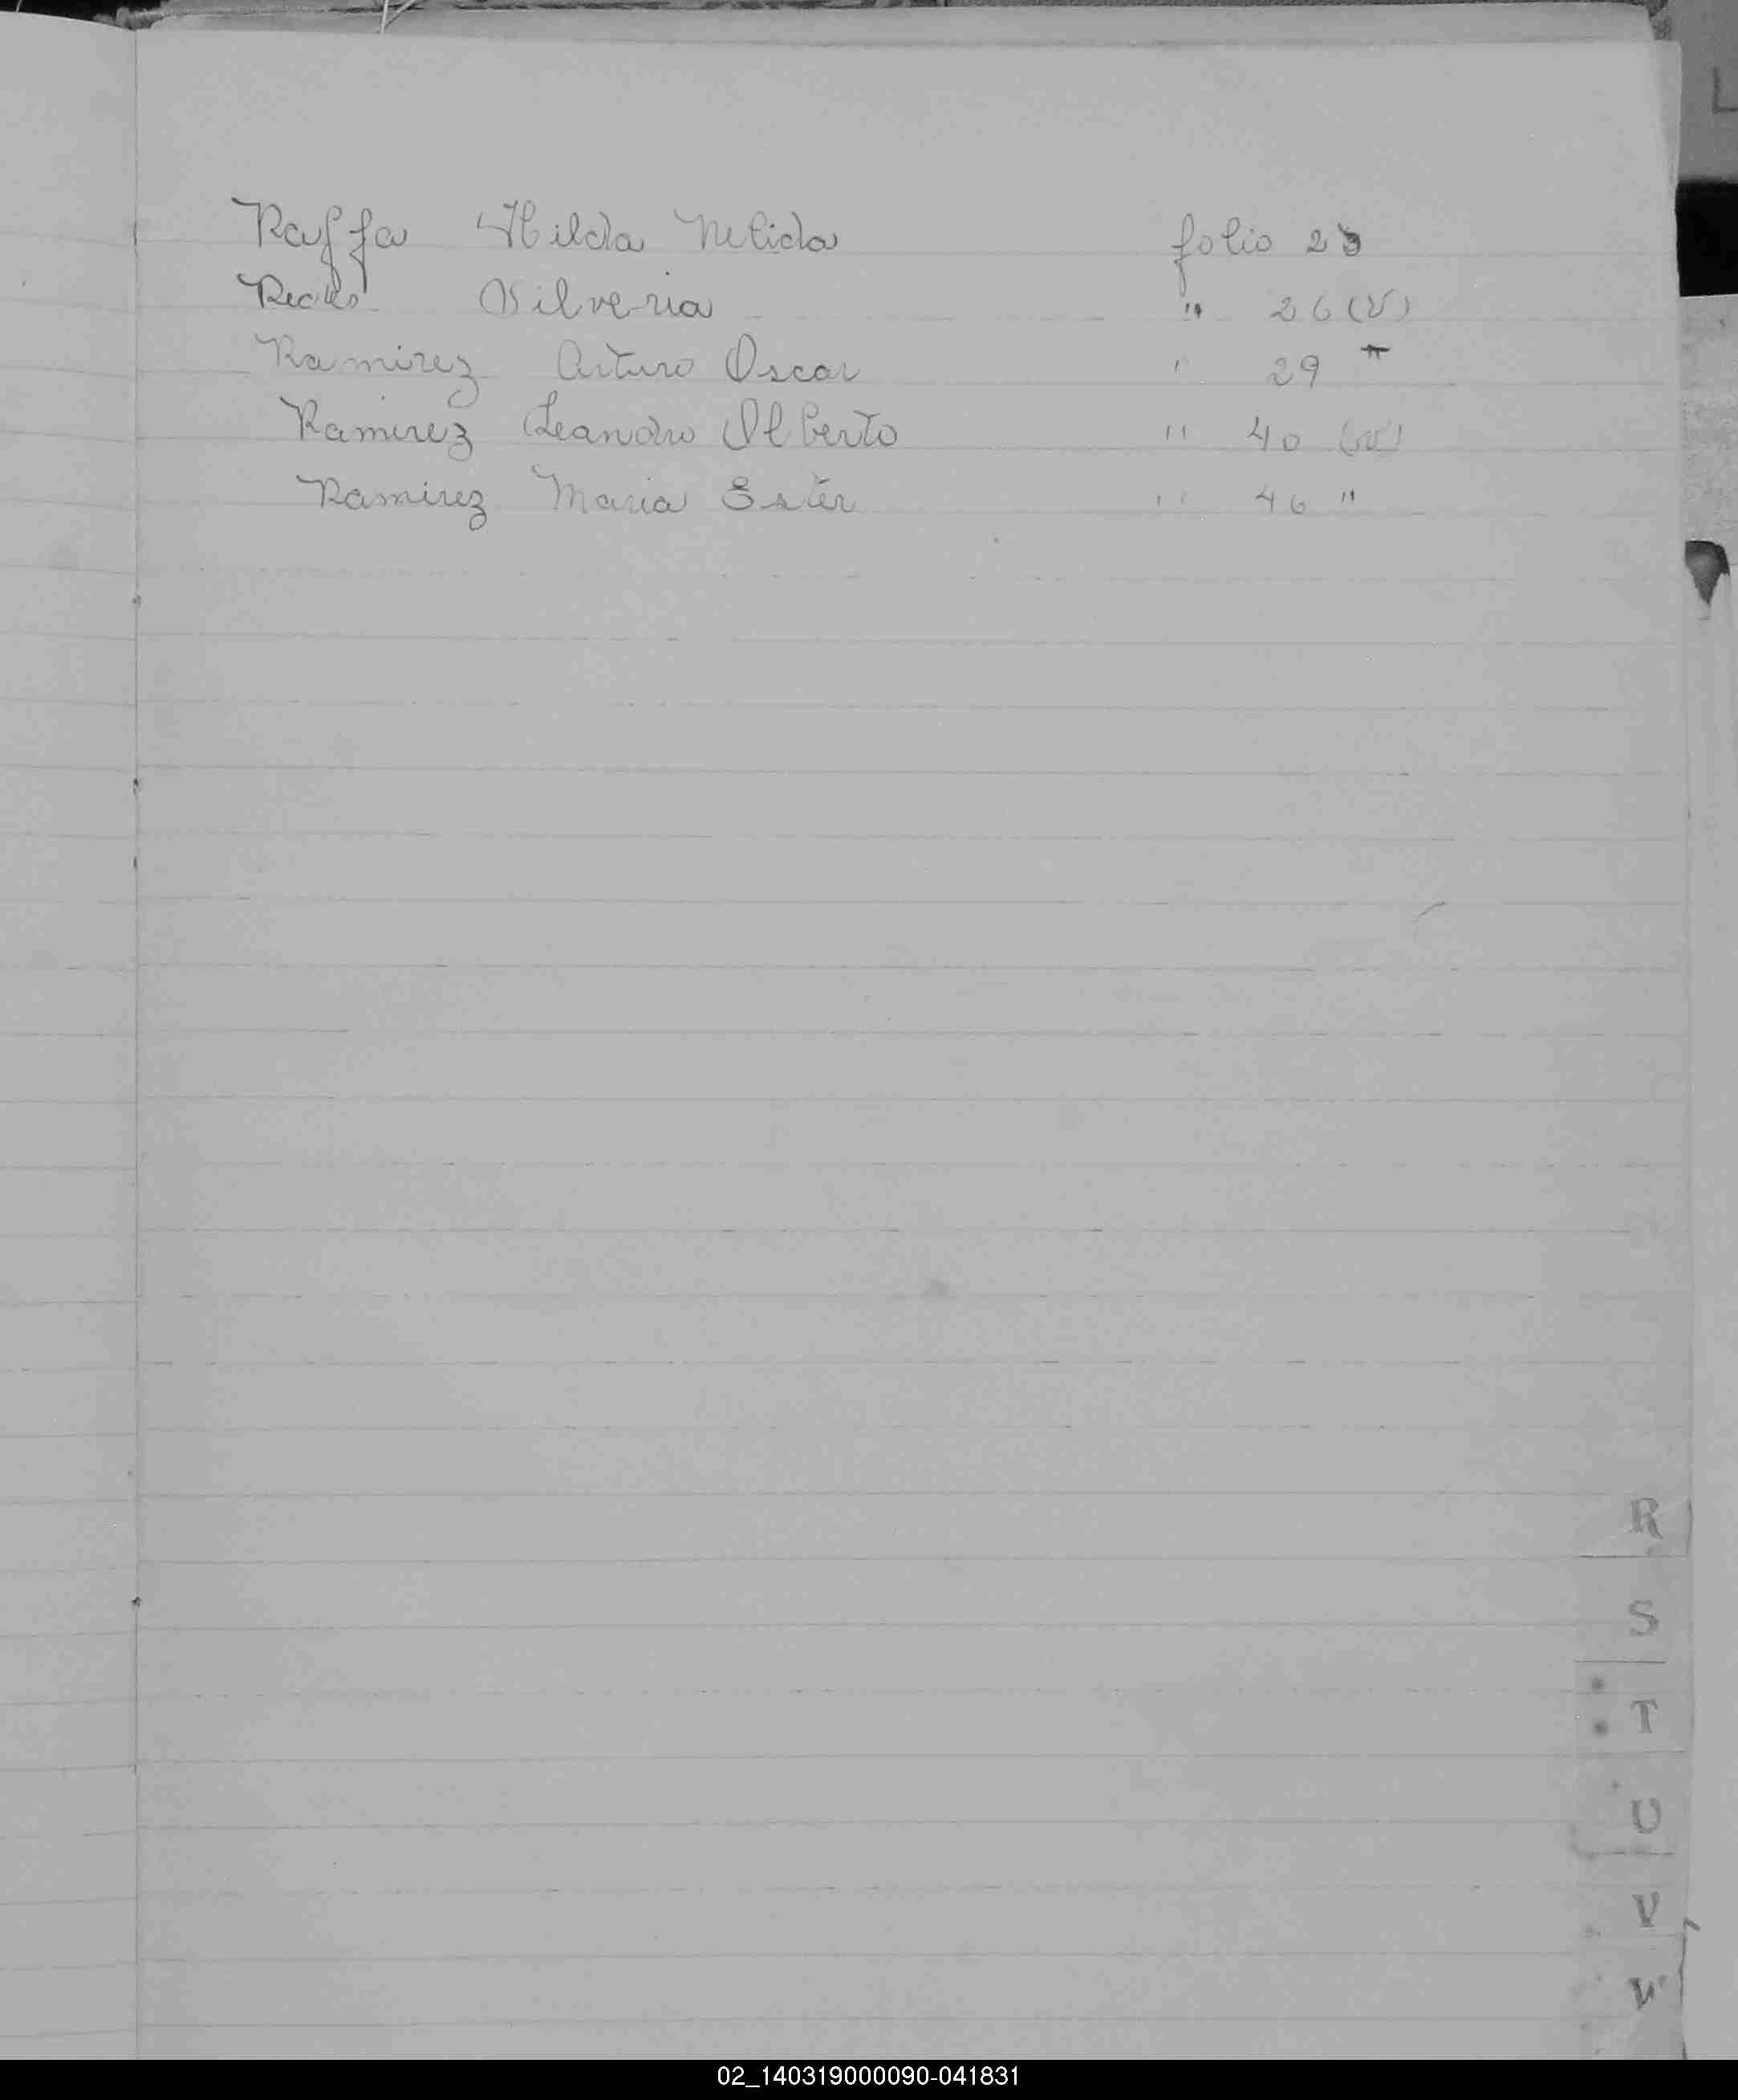 Raffa Hilda Nelida folio 23
Silveria " 26 (V)
Ramirez Arturo Oscar " 29
Ramirez Leandro Alberto " 40 (V)
Ramirez Maria Ester " 46 "
R
S
T
U
V
W
02_140319000090-041831